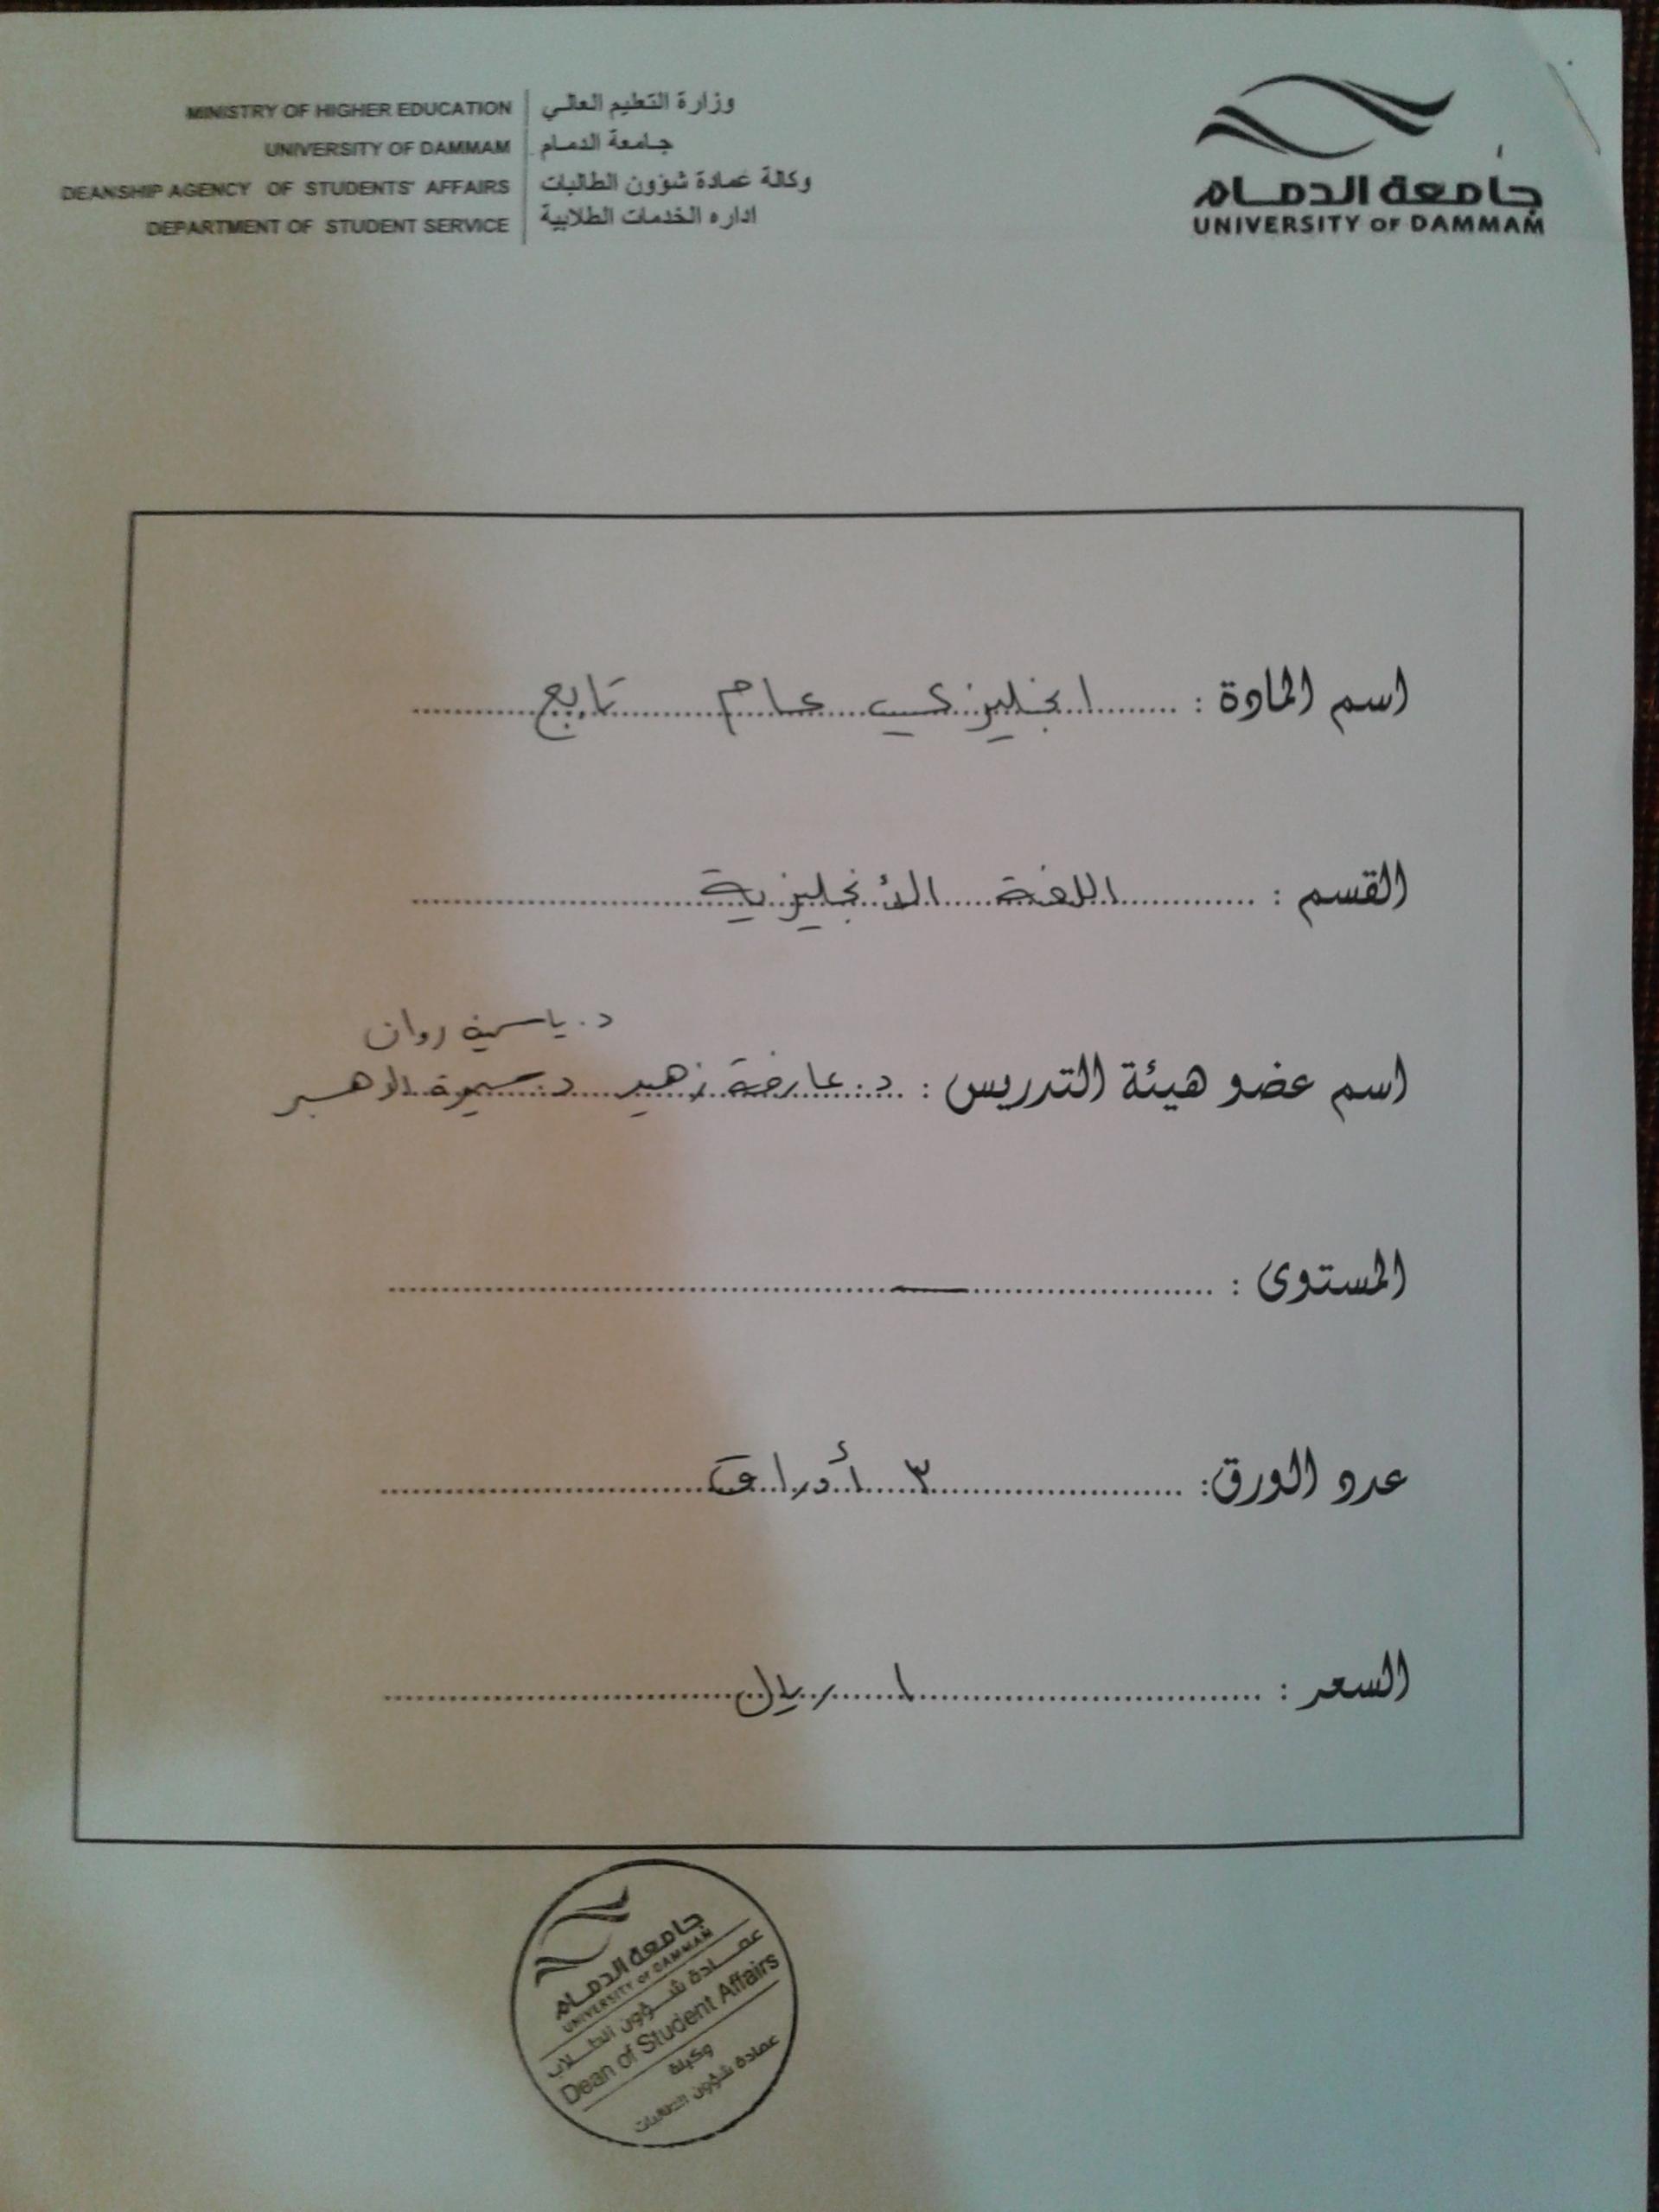 MINISTRY OF HIGHER EDUCATION
UNIVERSITY OF DAMMAM
DEANSHIP AGENCY OF STUDENTS' AFFAIRS
DEPARTMENT OF STUDENT SERVICE
وزارة التعليم العالي
جامعة الدمام
وكالة عمادة شؤون الطالبات
اداره الخدمات الطلابية
جامعة الدمام
UNIVERSITY OF DAMMAM
اسم المادة : انجليزي عام تابع
القسم : اللغة الأنجليزية
د. ياسمين روان
اسم عضو هيئة التدريس : د. عارفة زهير د.
المستوى : ــ
عدد الورق: ٣ أوراق
السعر : ١ ريال
جامعة الدمام
UNIVERSITY OF DAMMAM
عمادة شؤون الطلاب
Dean of Student Affairs
وكيلة
عمادة شؤون الطالبات